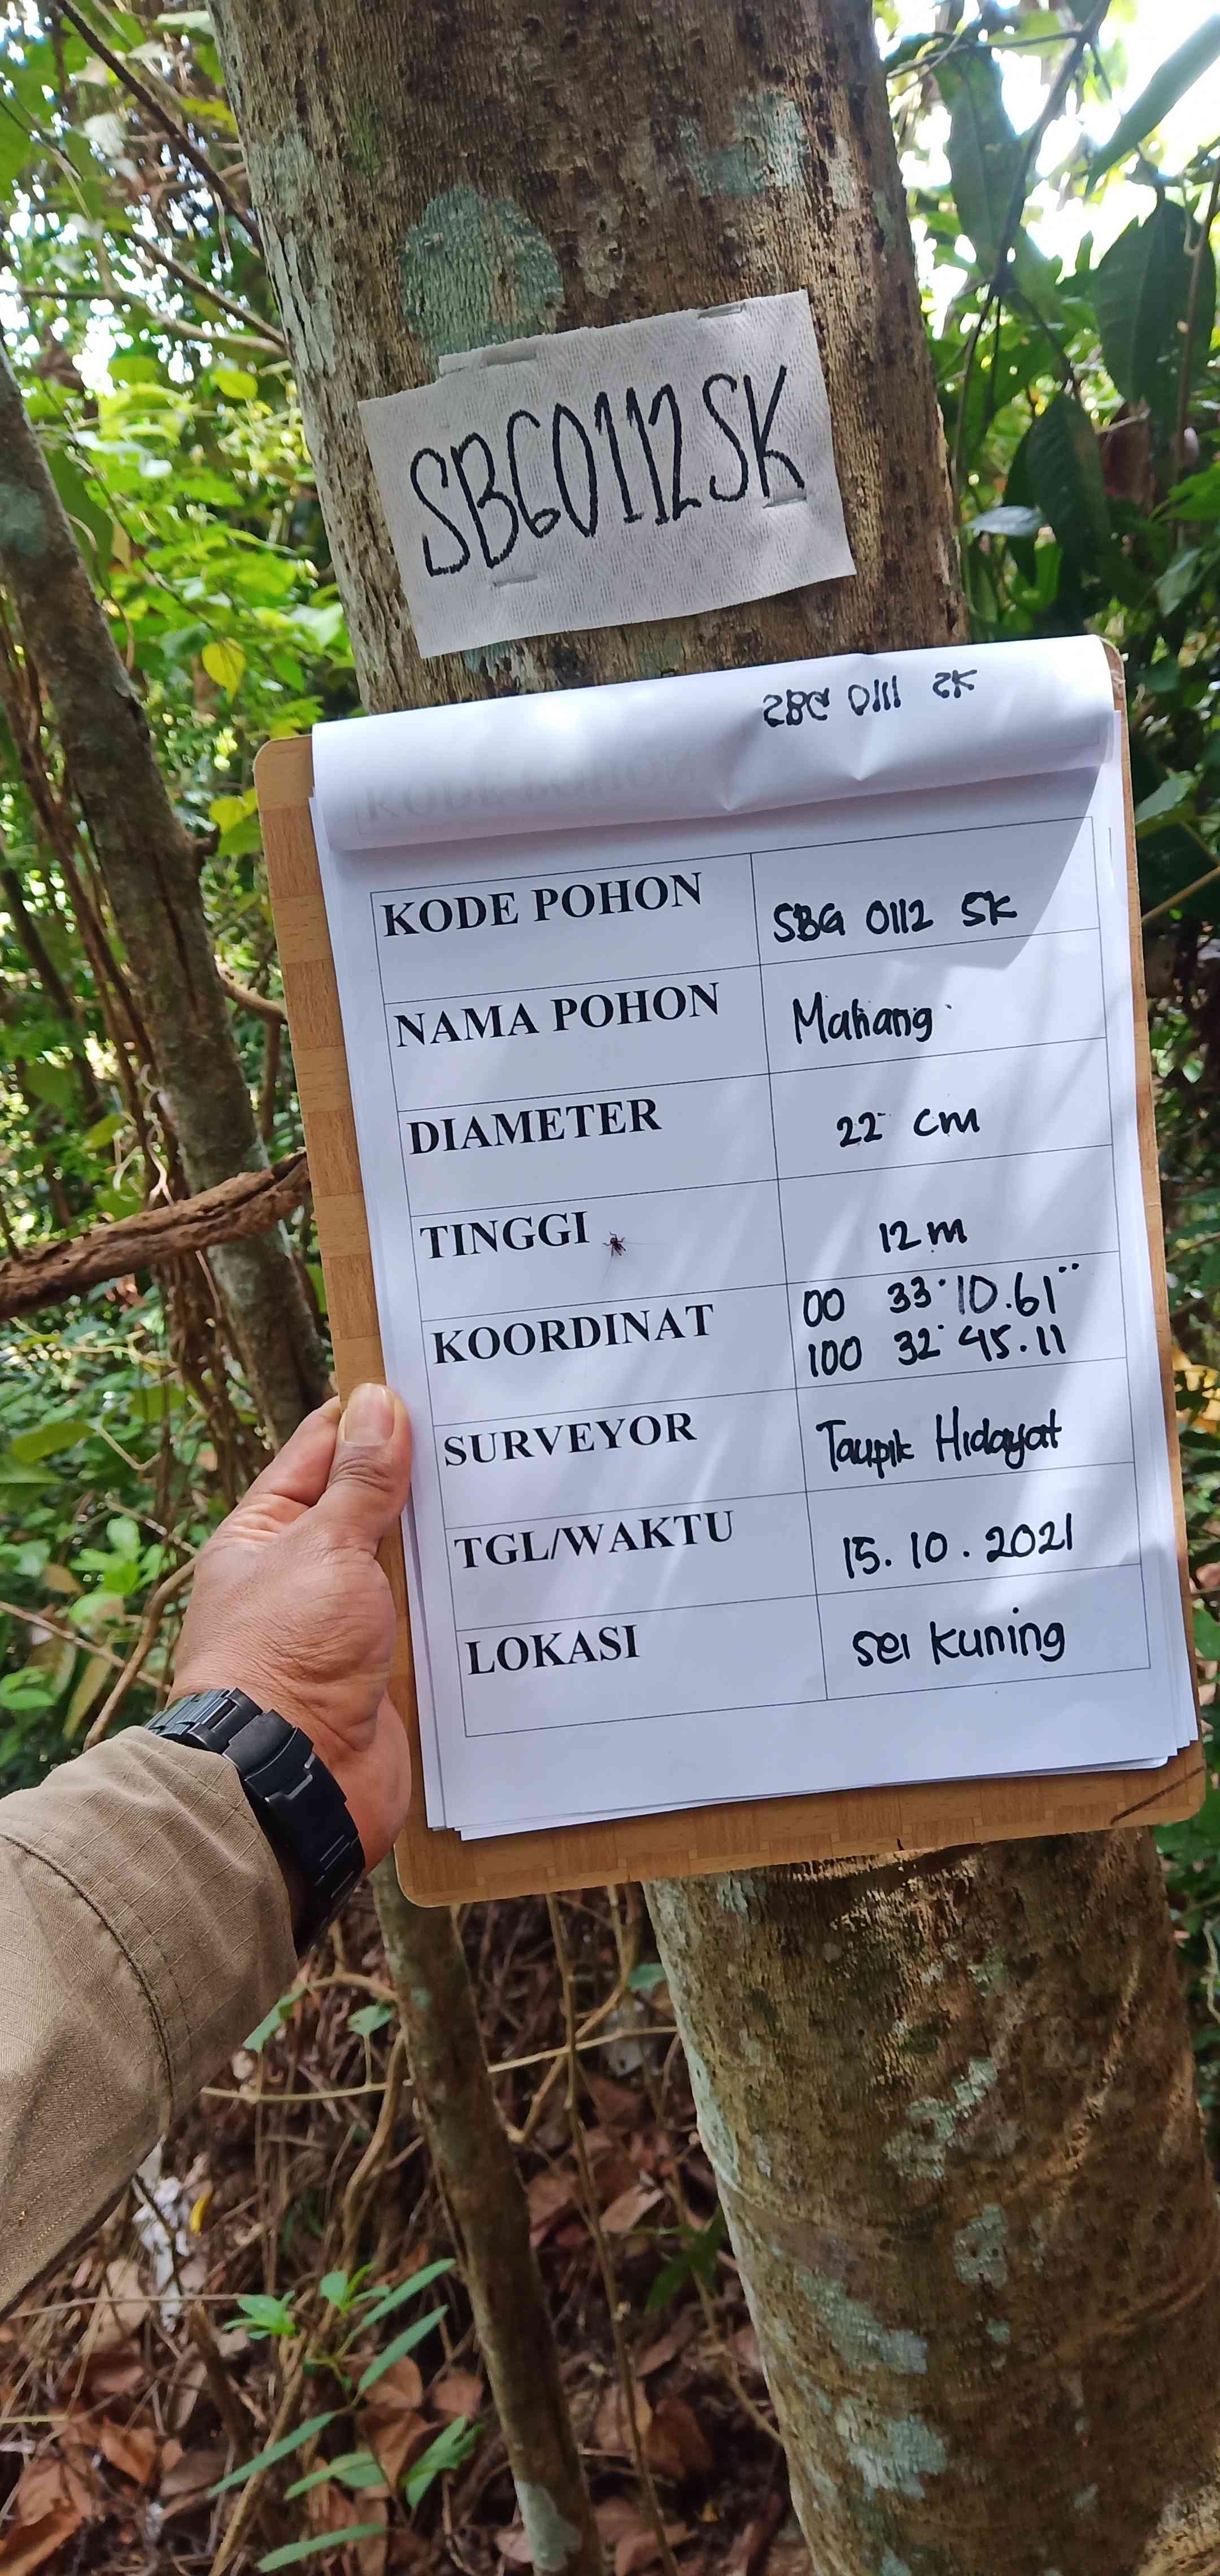 SBG0112SK
SBG 0111 SK
KODE POHON
KODE POHON SBG 0112 SK
NAMA POHON Mahang
DIAMETER 22 cm
TINGGI 12 m
KOORDINAT 00 33' 10.61"
100 32' 45.11
SURVEYOR Taupik Hidayat
TGL/WAKTU 15.10.2021
LOKASI Sei Kuning